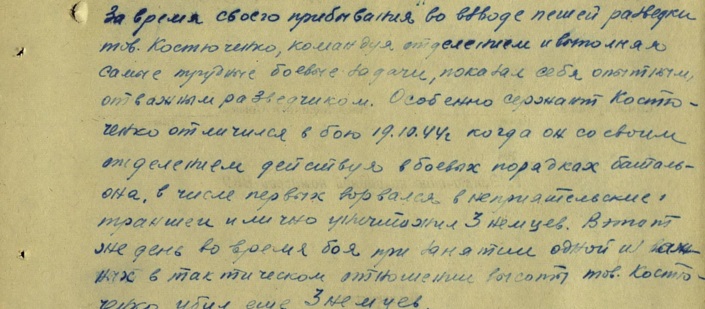 За время своего прибывания во взводе пешей разведки
тов. Костюченко, командуя отделением и выполняя
самые трудные боевые задачи, показал себя опытным,
отважным разведчиком. Особенно сержант Костю-
ченко отличился в бою 19.10.44г когда он со своим
отделением действуя в боевых порядках баталь-
она, в числе первых ворвался в неприятельские
траншеи и лично уничтожил 3 немцев. В этот
же день во время боя при занятии одной из важ-
ных в тактическом отношении высоты тов. Костю-
ченко убил еще 3 немцев.